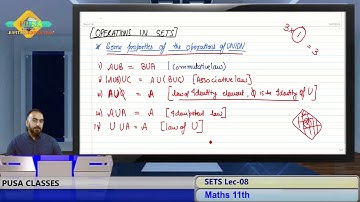 PUSA
[OPERATIONS IN SETS]
* Some properties of the operations of UNION
i) AUB = BUA (commutative law)
ii) (AUB)UC = AU(BUC) [Associative law]
iii) AUφ = A [law of Identity element, φ is the Identity of U]
iv) AUA = A [Idempotent law]
v) U UA = A [law of U]
3
1
3
PUSA CLASSES
SETS Lec-08
Maths 11th